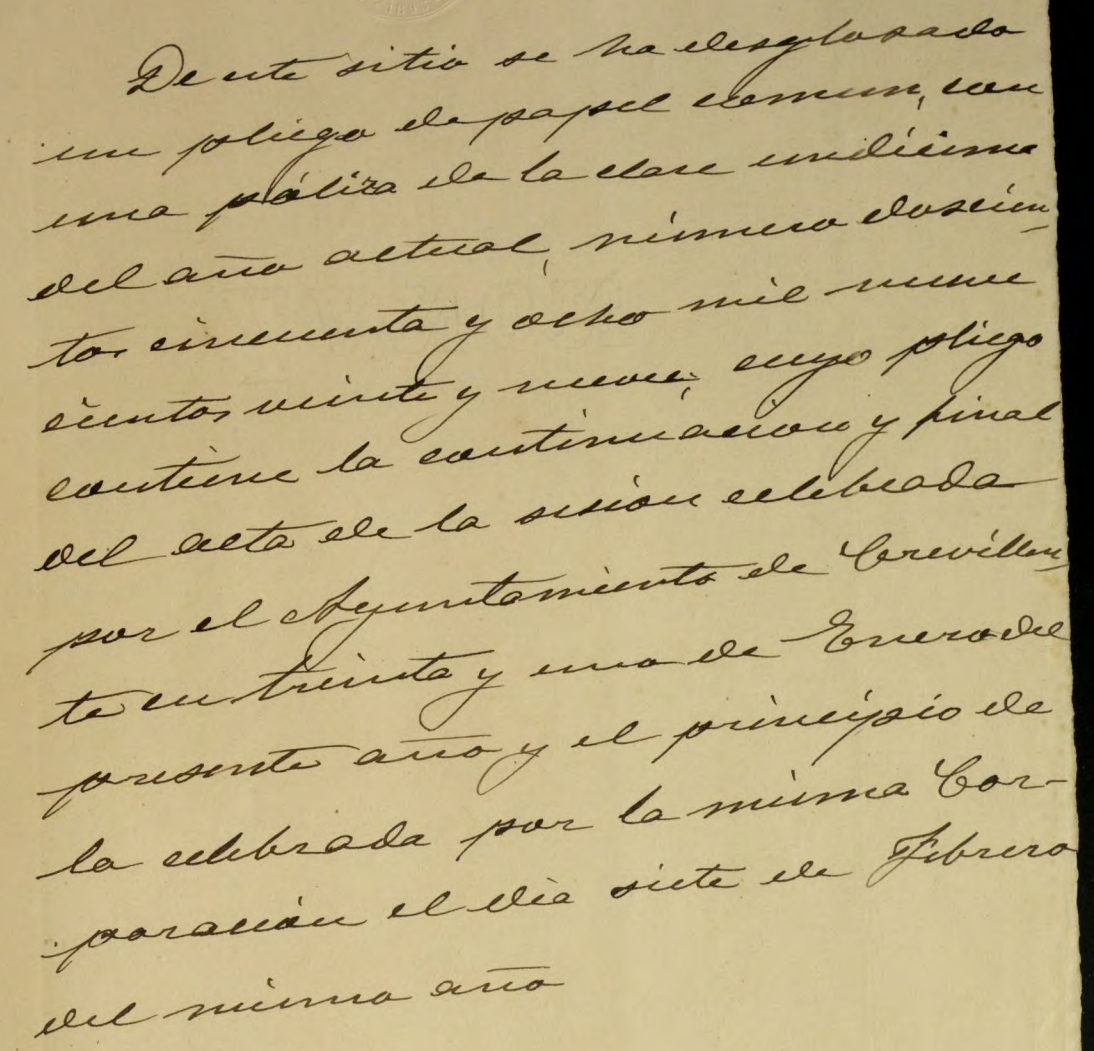 De este sitio se ha desglosado
un pliego de papel comun, con
una póliza de la clase undécima
del año actual, número doscien-
tos cincuenta y ocho mil nueve
cientos veinte y nueve; cuyo pliego
contiene la continuación y final
del acta de la sesión celebrada
por el Ayuntamiento de Crevillen-
te en treinta y uno de Enero del
presente año y el principio de
la celebrada por la misma Cor-
poración el día siete de Febrero
del mismo año